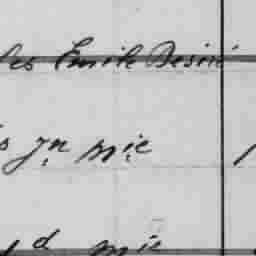 les Emile Desiré
s Jn Mie
d Mie